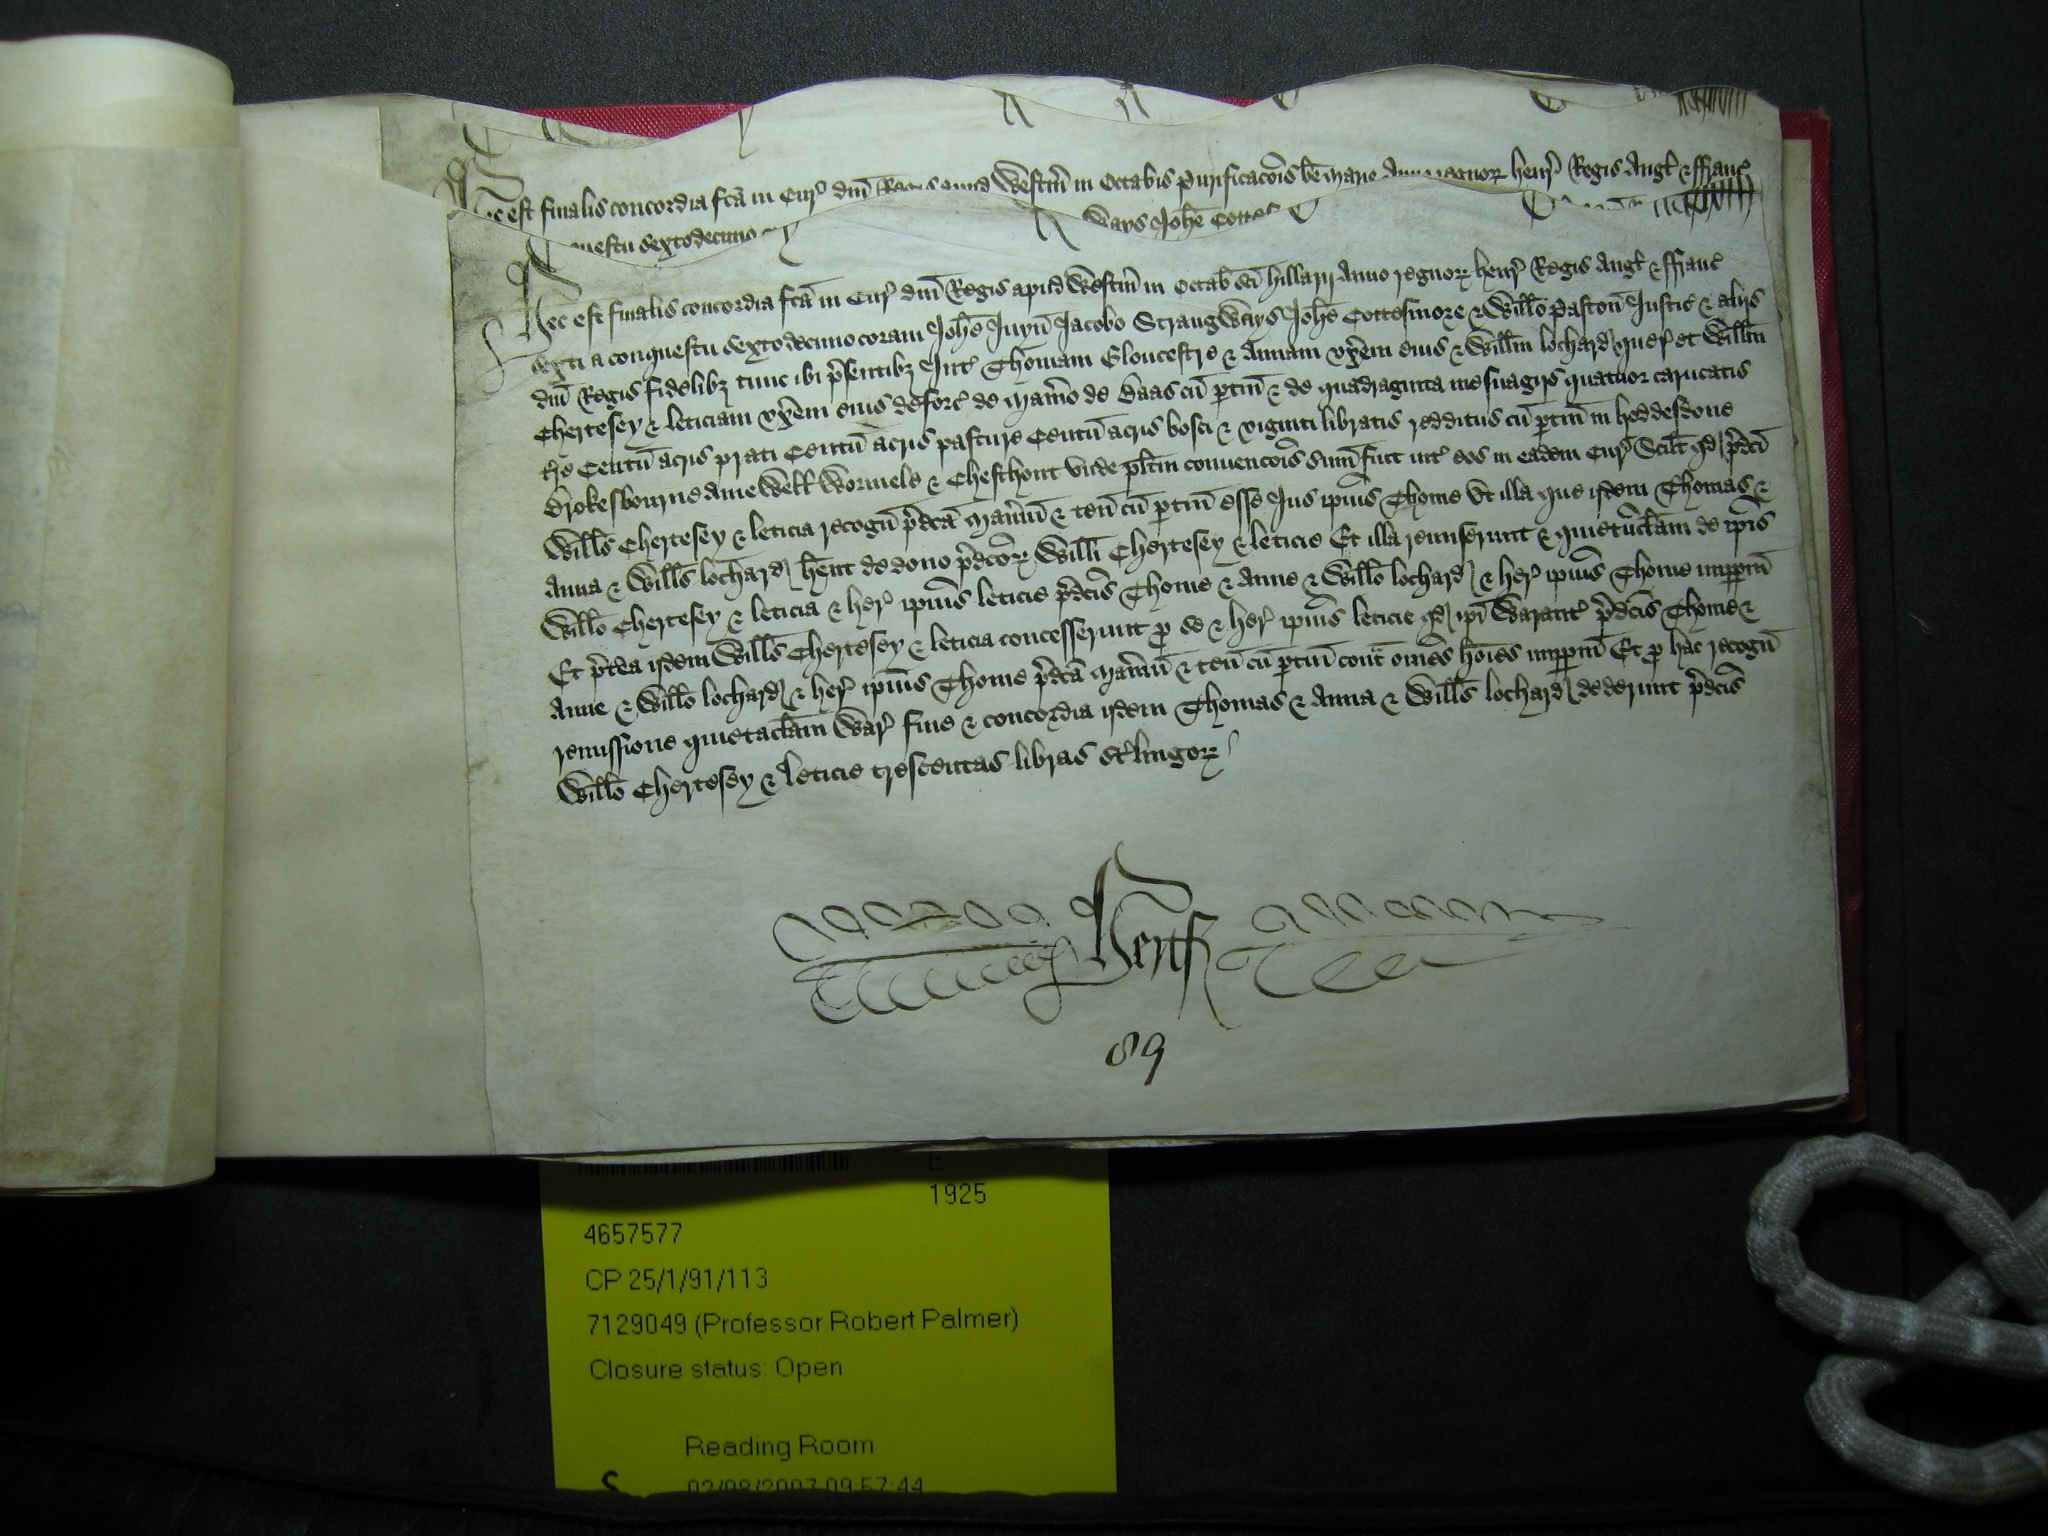 Hec est finalis concordia fcã in Cur̉ dñi Regis apud Westm̃ in Octabis Purificacõis bẽ Marie Anno regnoꝝ Henr̉ Regis Angł & ffranc̉
questu sextodecimo
ways Johẽ Cottes
Hec est finalis concordia fcã in Cur̉ dñi Regis apud Westm̃ in Octab̃ sc̃i Hillarij Anno regnoꝝ Henr̉ Regis Angł & ffranc̉
sexti a conquestu sextodecimo coram Johẽ Juyñ Jacobo Strangways Johẽ Cottesmore & Willo Pastoñ Justic̉ & alijs
dñi Regis fidelibꝫ tunc ibi p̃sentibꝫ Int̉ Thomam Gloucestre & Annam vx̃em eius & Willm̃ Lochard quer̉ et Willm̃
Chertesey & Leticiam vx̃em eius deforc̉ de Man̉io de Baas cũ ptiñ & de quadraginta mesuagijs quatuor carucatis
t̃re Centũ acris prati Centũ acris pasture Centũ acris bosci & viginti libratis redditus cũ ptiñ in Hoddesdone
Brokesbourne Amewell Wormele & Chesthont Vnde pl̃itm̃ conuencõis sum̃ fuit int̉ eos in eadem Cur̉ Scilt qd p̃dc̃i
Wills̃ Chertesey & Leticia recogñ p̃dc̃a Man̉iũ & teñ cũ ptiñ esse Jus ip̃ius Thome vt illa que ijdem Thomas &
Anna & Wills̃ Lochard hent de dono p̃dc̃oꝝ Willi Chertesey & Leticie Et illa remiserunt & quietũclam̃ de ip̃is
Willo Chertesey & Leticia & her̉ ip̃ius Leticie p̃dc̃is Thome & Anne & Willo Lochard & her̉ ip̃ius Thome imppm̃
Et p̃tea ijdem Wills̃ Chertesey & Leticia concesserunt p se & her̉ ip̃ius Leticie qd ip̃i Warant̉ p̃dc̃is Thome &
Anne & Willo Lochard & her̉ ip̃ius Thome p̃dc̃a Man̉iũ & teñ cũ ptiñ cont̃ om̃es hoĩes imppm̃ Et p hac recogñ
remissione quietaclam̃ War̉ fine & concordia ijdem Thomas & Anna & Wills̃ Lochard dederunt p̃dc̃is
Willo Chertesey & Leticie trescentas libras st̉lingoꝝ
Hertf
89
E
1925
4657577
CP 25/1/91/113
7129049 (Professor Robert Palmer)
Closure status: Open
Reading Room
S 02/08/2007 09:57:44